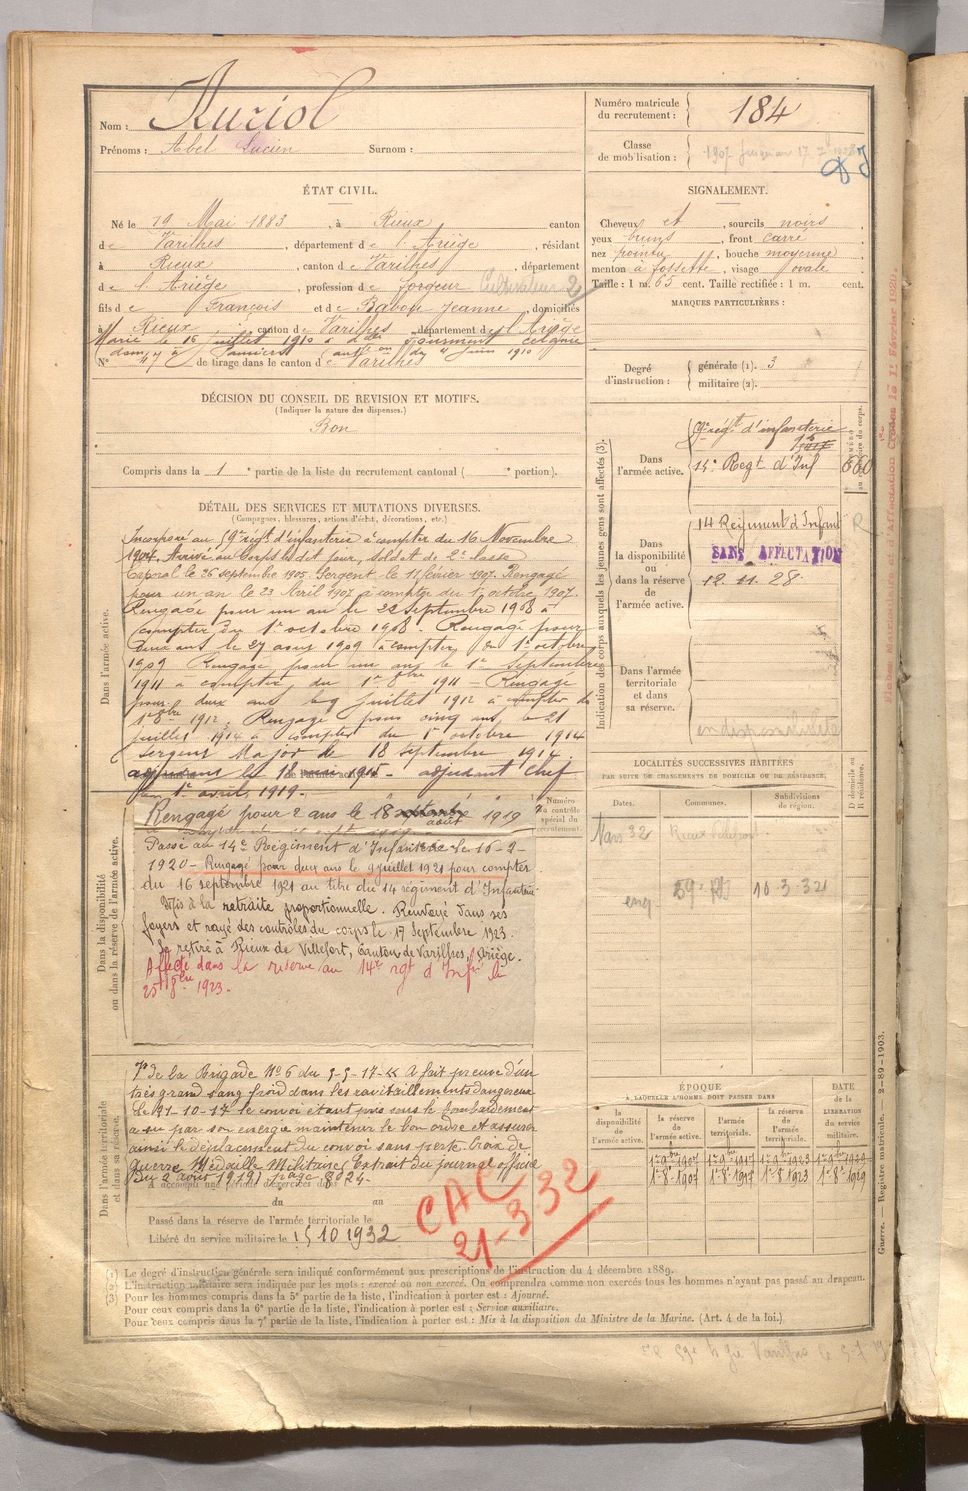 Nom : Auriol
Prénoms : Abel Lucien Surnom :
Numéro matricule du recrutement : 184
Classe de mobilisation : 1907
ÉTAT CIVIL.
Né le 19 Mai 1883, à Rieux canton
de Varilhes, département de l'Ariège, résidant
à Rieux, canton de Varilhes, département
de l'Ariège, profession de forgeur Cultivateur 2
fils de François et de Babou Jeanne, domiciliés
à Rieux, canton de Varilhes, département de l'Ariège
Marié le 16 juillet 1910 à
à Pamiers du 4 juin 1910
N° de tirage dans le canton de Varilhes
DÉCISION DU CONSEIL DE REVISION ET MOTIFS.
(Indiquer la nature des dispenses.)
Bon
Compris dans la 1e partie de la liste du recrutement cantonal ( e portion).
SIGNALEMENT.
Cheveux et, sourcils noirs
yeux bruns, front carré
nez pointu, bouche moyenne
menton à fossette, visage ovale
Taille : 1 m. 65 cent. Taille rectifiée : 1 m. cent.
MARQUES PARTICULIÈRES :
Degré d'instruction : générale (1). 3
militaire (2).
DÉTAIL DES SERVICES ET MUTATIONS DIVERSES.
(Campagnes, blessures, actions d'éclat, décorations, etc.)
Dans l'armée active.
Incorporé au 59e régt d'infanterie à compter du 16 Novembre
1904. Arrivé au corps le dit jour, soldat de 2e classe
Caporal le 26 septembre 1905. Sergent le 11 février 1907. Rengagé
pour un an le 23 Avril 1907 à compter du 1er octobre 1907.
Rengagé pour un an le 22 Septembre 1908 à
compter du 1er octobre 1908 - Rengagé pour
deux ans le 27 août 1909 à compter du 1er octobre
1909 Rengagé pour un an le 1er Septembre
1911 à compter du 1er 8bre 1911 - Rengagé
pour deux ans le 9 juillet 1912 à compter du
1er 8bre 1912. Rengagé pour cinq ans le 21
juillet 1914 à compter du 1er octobre 1914
Sergent Major le 18 septembre 1914.
adjudant le 18 1915 - adjudant chef
le 1er avril 1919 -
Dans la disponibilité ou dans la réserve de l'armée active.
Rengagé pour 2 ans le 18 août 1919
Passé au 14e Régiment d'Infanterie le 16-2-
1920 - Rengagé pour deux ans le 9 juillet 1921 pour compter
du 16 septembre 1921 au titre du 14 régiment d'Infanterie
Mis à la retraite proportionnelle. Renvoyé dans ses
foyers et rayé des contrôles du corps le 17 Septembre 1923.
Se retire à Rieux de Villefort, Canton de Varilhes, Ariège.
Affecté dans la réserve au 14e rgt d'Infie le
25 1923 -
Numéro au contrôle spécial du recrutement.
Dans l'armée territoriale et dans sa réserve.
de la Brigade No 6 du 5-5-17 - A fait preuve d'un
très grand sang froid dans les ravitaillements dangereux
Le 21-10-17 le convoi étant pris sous le bombardement
a su par son énergie maintenir le bon ordre et assurer
ainsi le déplacement du convoi sans perte. Croix de
guerre. Médaille Militaire (Extrait du Journal officiel
du 2 août 1919) page 8024 -
A accompli une période d'exercices dans
du au
Passé dans la réserve de l'armée territoriale le
Libéré du service militaire le 15 10 1932
CAC
21-3 32
Indication des corps auxquels les jeunes gens sont affectés (3).
Dans l'armée active.
9e régt d'infanterie
14e Regt d'Inf
660
Dans la disponibilité ou dans la réserve de l'armée active.
14 Régiment d'Infant
SANS AFFECTATION
12. 11. 28
Dans l'armée territoriale et dans sa réserve.
indisponibilité
LOCALITÉS SUCCESSIVES HABITÉES
PAR SUITE DE CHANGEMENTS DE DOMICILE OU DE RÉSIDENCE.
Dates. Communes. Subdivisions de région. D domicile ou R résidence.
Mars 32 Rieux
10-3-32
ÉPOQUE
À LAQUELLE L'HOMME DOIT PASSER DANS
la disponibilité de l'armée active. la réserve de l'armée active. l'armée territoriale. la réserve de l'armée territoriale.
DATE de la LIBÉRATION du service militaire.
1er 9bre 1907 1er 9bre 1917 1er 9bre 1923 1er 9bre 1929
1er 8 1907 1er 8 1917 1er 8 1923 1er 8 1929
(1) Le degré d'instruction générale sera indiqué conformément aux prescriptions de l'instruction du 4 décembre 1889.
(2) L'instruction militaire sera indiquée par les mots : exercé ou non exercé. On comprendra comme non exercés tous les hommes n'ayant pas passé au drapeau.
(3) Pour les hommes compris dans la 5e partie de la liste, l'indication à porter est : Ajourné.
Pour ceux compris dans la 6e partie de la liste, l'indication à porter est : Service auxiliaire.
Pour ceux compris dans la 7e partie de la liste, l'indication à porter est : Mis à la disposition du Ministre de la Marine. (Art. 4 de la loi.)
Guerre. — Registre matricule. 2-89-1903.